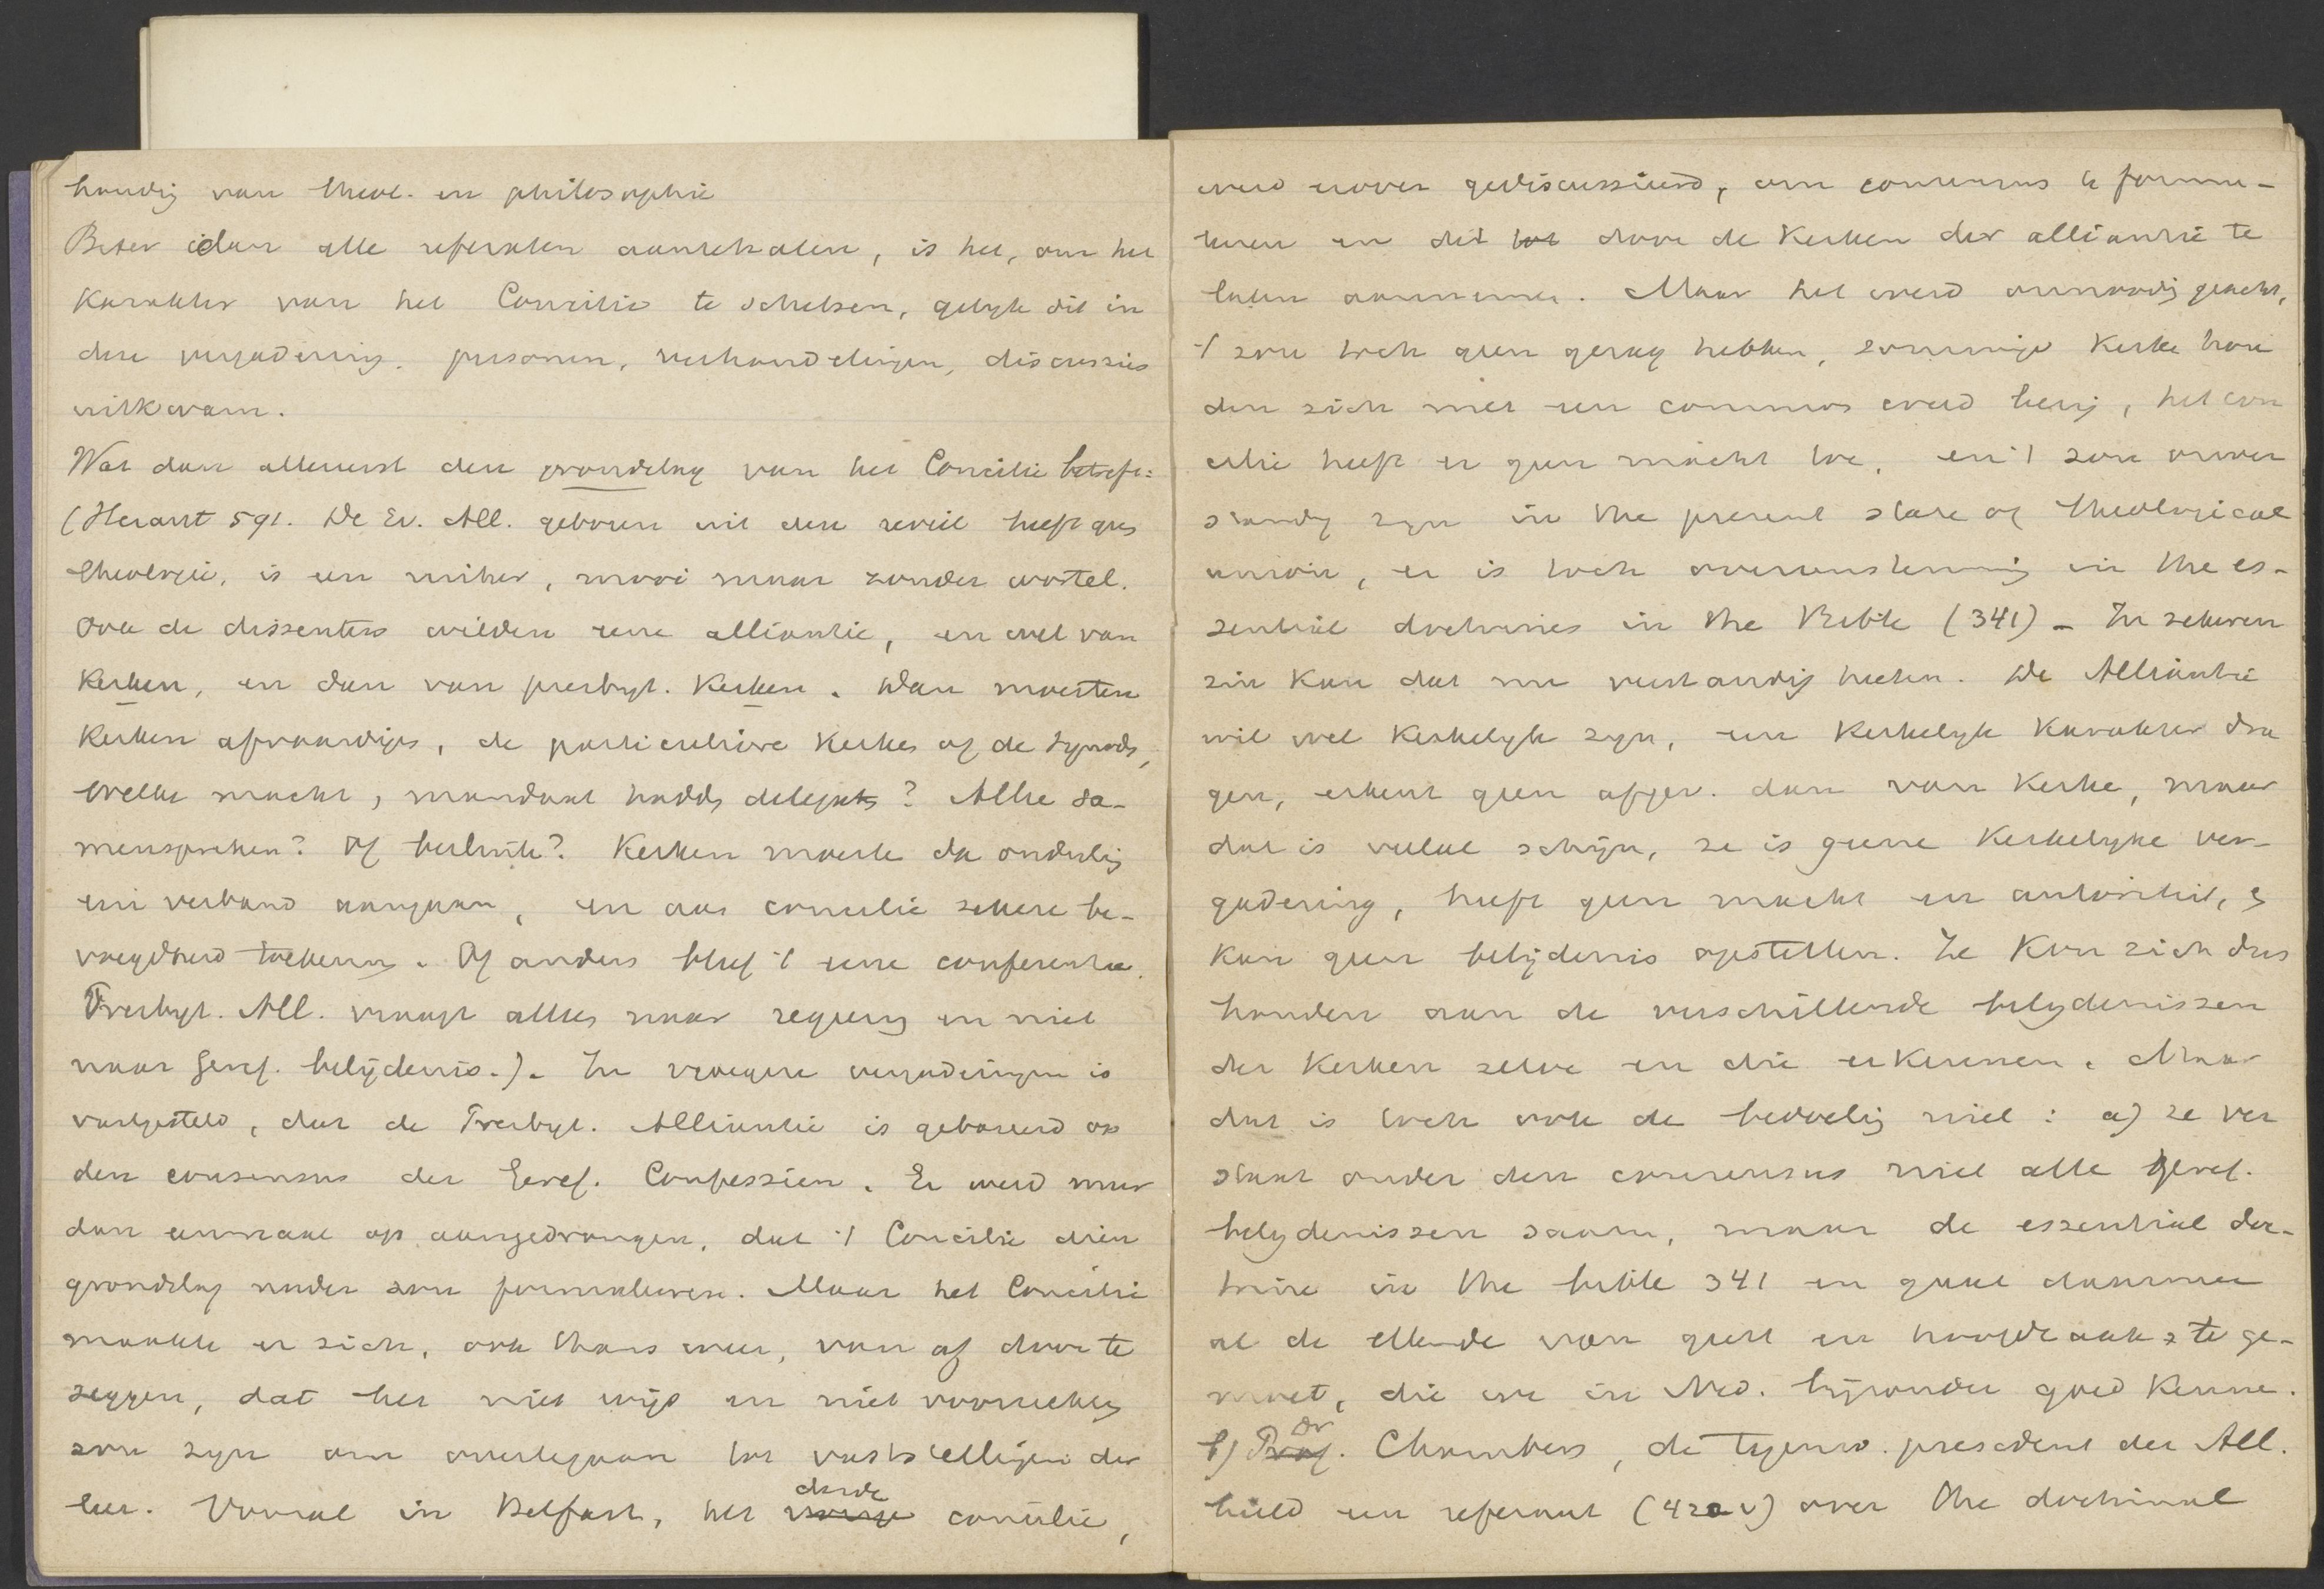 houdig van theol. en philosophie
Beter dan alle referaten aan te halen, is het, om het
Karakter van het Concilie te schetsen, gelyk dit in
deze vergadering. personen, verhandelingen, discussies
uitkwam.
Wat dan allereerst den grondslag van het Concilie betreft:
(Heraut 591. De Ev. All. geboren uit den reveil heeft gees
theologie, is een , mooi maar zonder wortel.
Ook de dissenters wilden eene alliantie, en wel van
Kerken, en dan van presbyt. Kerken. Dan moesten
Kerken afvaardigen, de particuliere Kerken of de synods,
Welke macht, mandaat hadden delegates? Alleen sa-
menspreken? Of besluite? Kerken moeste dan onderling
een verband aangaan, en aan concilie zekere be-
voegdheid toekennen. Of anders bleef 't eene conferentie.
Presbyt. All. vraagt alles naar regering en niet
naar Geref. belijdenis.). In vroegere vergaderingen is
vastgesteld, dat de Presbyt. Alliantie is gebaseerd op
den consensus der Geref. Confessien. Er werd meer
dan eenmaal op aangedrongen, dat 't Concilie dien
grondslag nader zou formuleeren. Maar het Concilie
maakte er zich, ook thans weer, van af door te
zeggen, dat het niet wijs en niet voorzichtig
zou zyn om over te gaan tot vaststellingen der
leer. Vooral in Belfast, het vorige derde concilie,
werd erover gediscussieerd, om consensus te formu-
leeren en die tot door de Kerken der alliantie te
laten aannemen. Maar het werd onnoodig geacht,
't zou toch geen gezag hebben, sommige Kerke hou
den zich met een common creed bezig, het con
cilie heeft er geen macht toe, en 't zou onver
standig zyn in the present state of theological
union, er is toch overeenstemming in the es-
sential doctrines in the Bible (341) - In zekeren
zin kan dat nu verstandig heeten. De Alliantie
wil wel Kerkelyk zyn, een Kerkelyk Karakter dra
gen, erkent geen afgev. dan van Kerke, maar
dat is veelal schijn, ze is geene Kerkelyke ver-
gadering, heeft geen macht en autoriteit, en
kan geen belijdenis opstellen. Ze Kon zich dus
houden aan de verschillende belydenissen
der Kerken zelve en die erkennen. Maar
dat is toch ook de bedoeling niet: a) ze ver
staat onder den consensus niet alle geref.
belydenissen saam, maar de essential doc-
trine in the bible 341 en gaat daarmee
al de ellende van geest en hoofdzaak tege-
moet, die we in Ned. bijzonder goed Kenne.
b) Prof. Dr Chambers, de tegenw. president der All.
hield een referaat (420 v) over the doctrinal